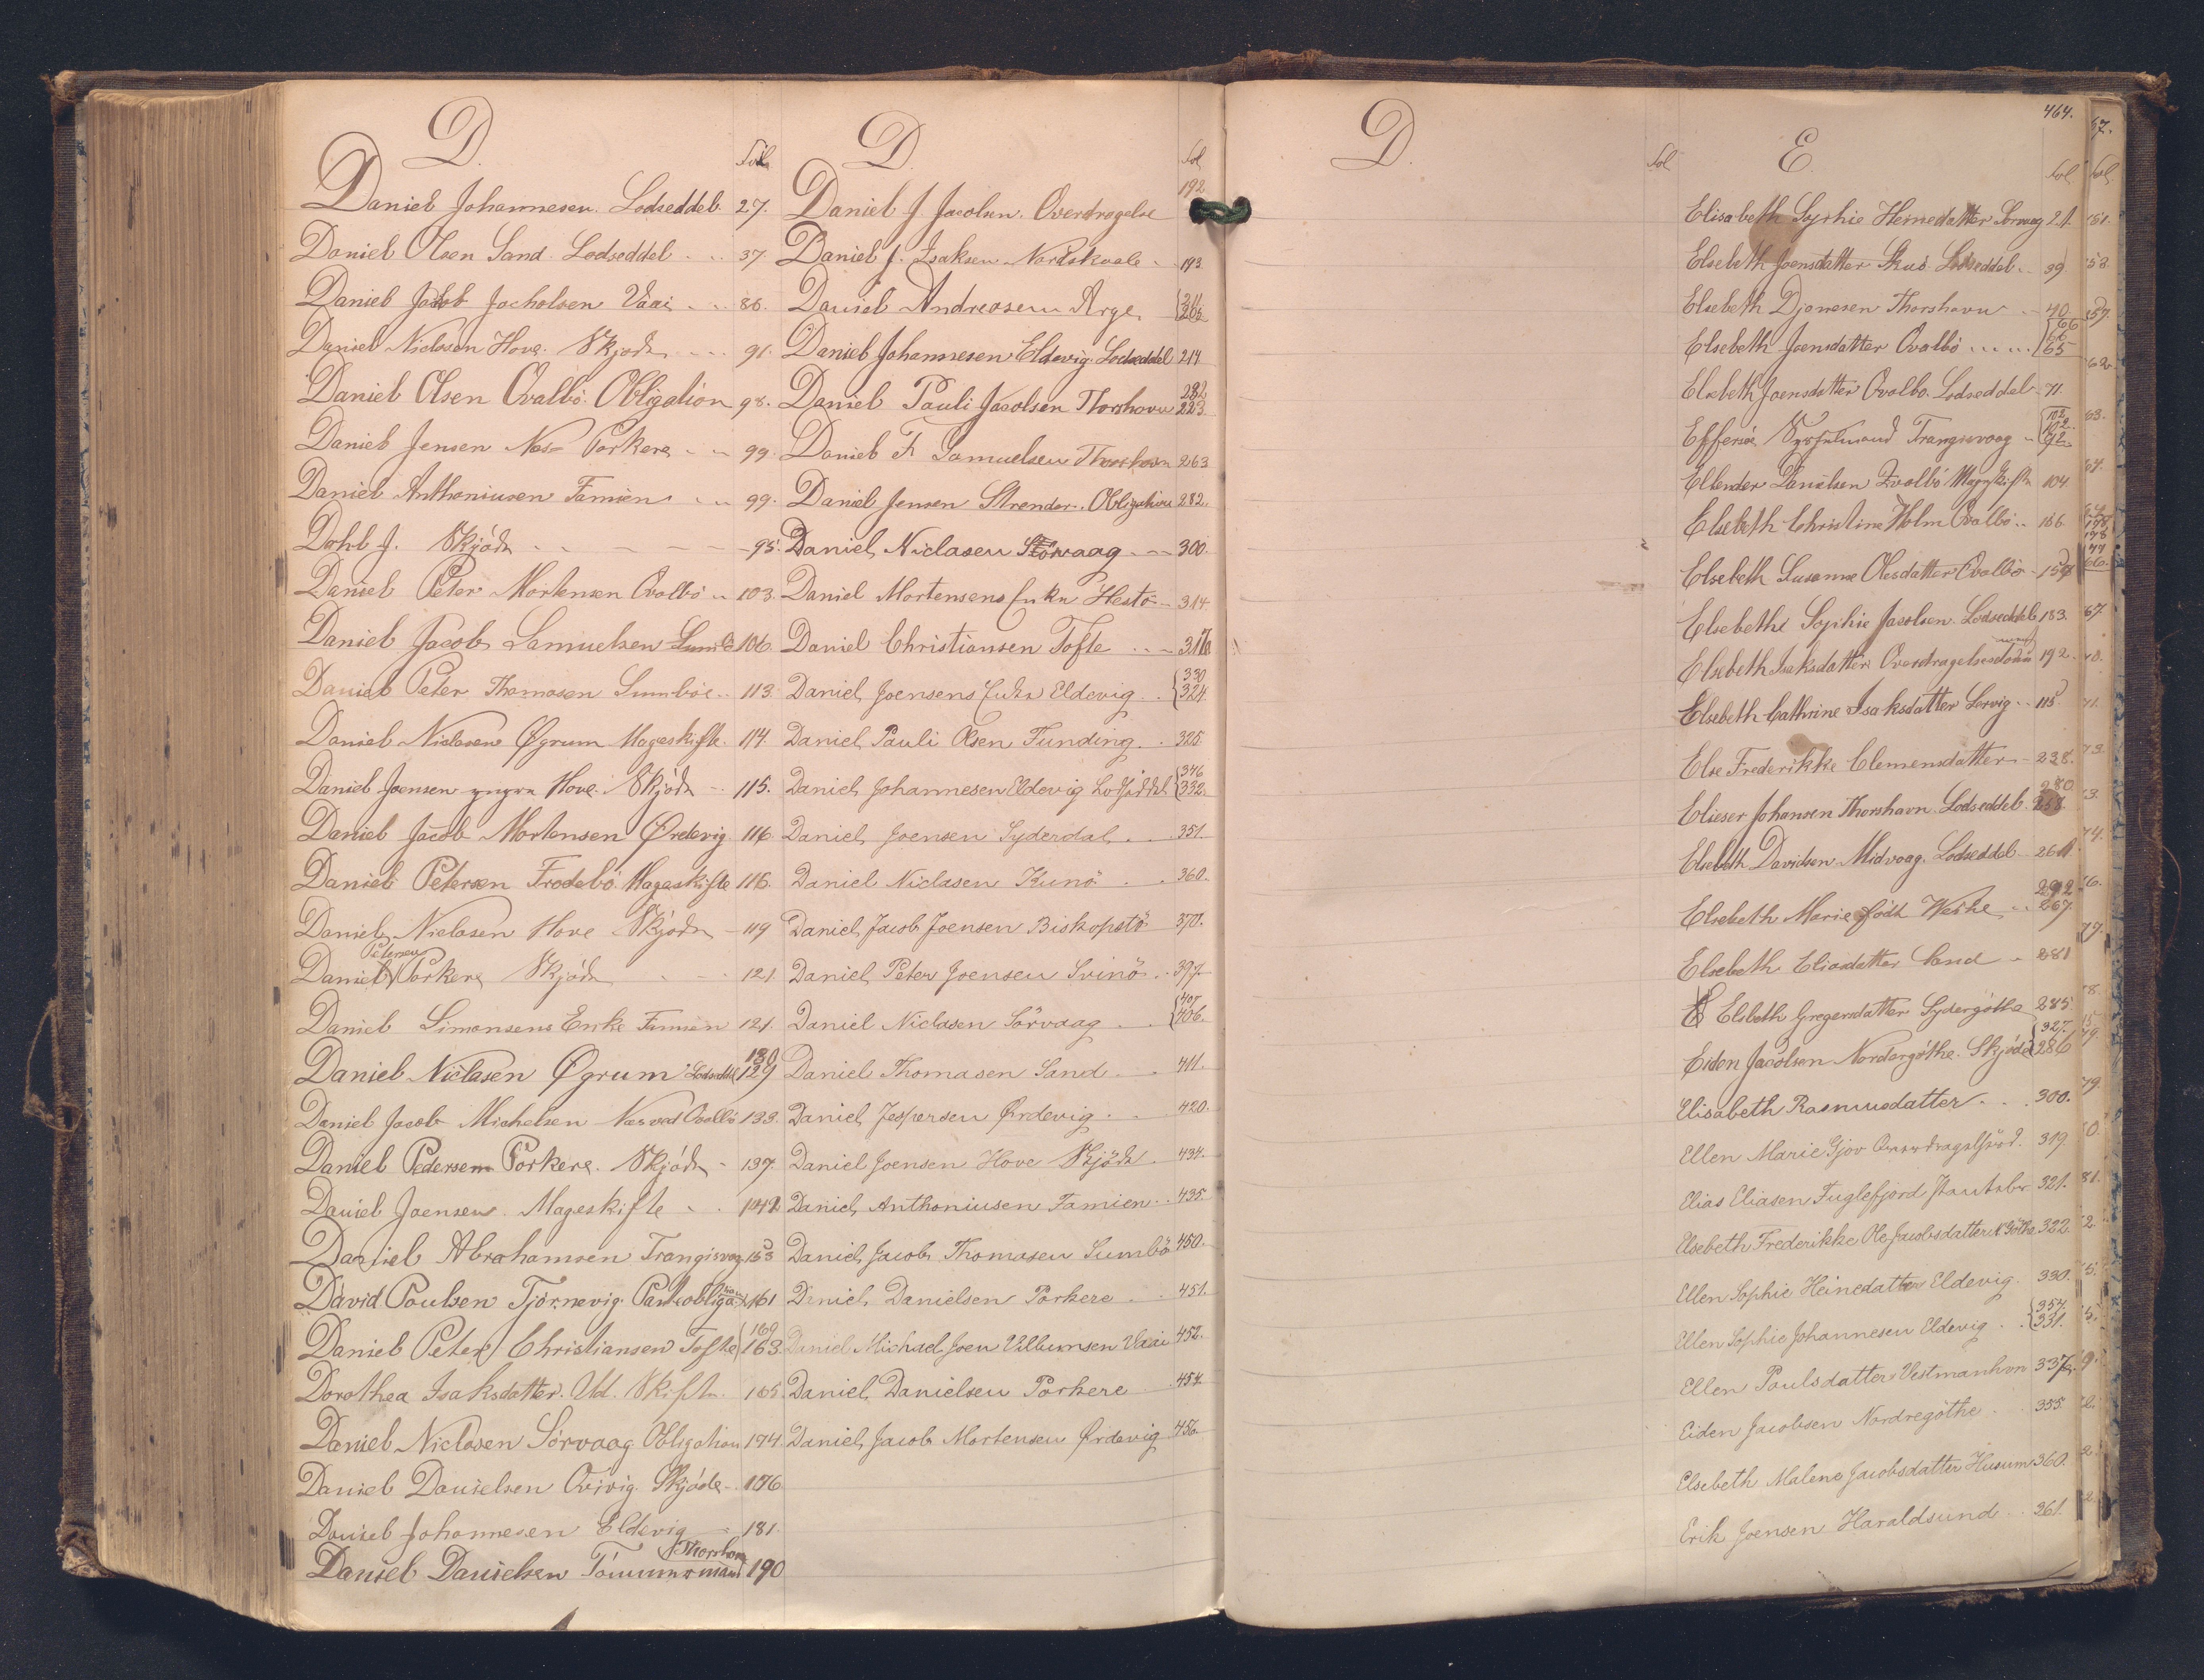 D.
Fol
Daniel Johannesen. Lodseddel. 27.
Daniel Olsen Sand. Lodseddel .. 37.
Daniel Jacob Jacobsen Vaai .. 86.
Daniel Niclasen Hove. Skjøde ... 91.
Daniel Olsen Qvalbö. Obligation 98.
Daniel Jensen Næs Porkere .. 99.
Daniel Anthoniusen Famien .. 99.
Dahl J. Skjöde - - - - 95.
Daniel Peter Mortensen Qvalbö .. 103.
Daniel Jacob Samuelsen Sumbö 106.
Daniel Peter Thomasen Sumböe .. 113.
Daniel Niclasen Øgrum Mageskifte. 114.
Daniel Joensen yngre Hove. Skjöde .. 115.
Daniel Jacob Mortensen Ørdevig 116
Daniel Petersen Frodebö. Mageskifte 116.
Daniel Niclasen Hove Skjöde - 119
Petersen
Daniel Porkere Skjöde - - - 121
Daniel Simonsens Enke Famien 121.
180
Daniel Niclasen Øgrum Lodseddel 129
Daniel Jacob Michelsen Næs ved Qvalbö 133.
Daniel Pedersen Porkere. Skjöde - 137.
Daniel Joensen. Mageskifte .. 142
Daniel Abrahamsen Trangisvaag 153
David Poulsen Tjörnevig. Panteobligation 161
169
Daniel Peter Christiansen Tofte 163.
Dorothea Isaksdatter. Ud. Skifte. 165
Daniel Niclasen Sörvaag Obligation 174.
Daniel Danielsen Qvivig. Skjöde - 176
Daniel Johannesen Eldevig - 181.
Thorshavn
Daniel Danielsen Tömmermand 190
D.
Fol
192
Daniel J. Jacobsen. Overdragelse
Daniel J. Isaksen Nordskaale .. 193.
Daniel Andreasen Arge
Daniel Johannesen Eldevig. Lodseddel 214
282
Daniel Pauli Jacobsen Thorshavn 223.
Daniel F. Samuelsen Thorshavn 263
Daniel Jensen Strender. Obligation 282.
Daniel Niclasen Sörvaag - - 300.
Daniel Mortensens Enke Hestö - 314
Daniel Christiansen Tofte .. - 316
330
Daniel Joensens Enke Eldevig . 324.
Daniel Pauli Olsen Funding . . 325.
346
Daniel Johannesen Eldevig Lodseddel 332.
Daniel Joensen Syderdal . . 351.
Daniel Niclasen Kunö . . 360.
Daniel Jacob Joensen Biskopstö 370.
Daniel Peter Joensen Svinö . . 397
407
Daniel Niclasen Sörvaag . . 406.
Daniel Thomasen Sand . . 411.
Daniel Jespersen Ørdevig . . 420.
Daniel Joensen Hove Skjöde . 434.
Daniel Anthoniusen Famien . . 435.
Daniel Jacob Thomasen Sumbö 450.
Daniel Danielsen Porkere . . 451.
Daniel Michael Joen Villumsen Vaai 452.
Daniel Danielsen Porkere . 454.
Daniel Jacob Mortensen Ørdevig 456.
D.
Fol
464.
E.
Fol
Elisabeth Sophie Heinedatter Sorvaag 21.
Elsebeth Joensdatter Skuö Lodseddel .. 39
Elsebeth Djonesen Thorshavn - 40
66
66
Elsebeth Joensdatter Qvalbö ..... 65
Elsebeth Joensdatter Qvalbö. Lodseddel - 71.
102
102
Effersöe Sysselmand Trangisvaag - 92
Ellender Danielsen Qvalbö Mageskifte 104
Elsebeth Christine Holm Qvalbö .. 166.
Elsebeth Susanne Olesdatter Qvalbö - 157
Elsebethe Sophie Jacobsen. Lodseddel 183.
Elsebeth Isaksdatter Overdragelsesdokument 192.
Elsebeth Cathrine Isaksdatter Lervig .. 115
Else Frederikke Clemensdatter - 238.
280
Elieser Johansen Thorshavn. Lodseddel.
Elsebeth Davidsen Midvaag. Lodseddel - 264
292
Elsebeth Marie født Weihe .. 267
Elsebeth Eliasdatter Sand - 281
Elsbeth Gregersdatter Sydergøthe 285
327.
Eiden Jacobsen Nordergöthe. Skjöde 286
Elisabeth Rasmusdatter . . . 300.
Ellen Marie Gjov 319.
Elias Eliasen Fuglefjord Panteobl. 321.
Elsebeth Frederikke Ole Jacobsdatter N. Göthe 322.
Ellen Sophie Heinedatter Eldevig. 330.
354.
Ellen Sophie Johannesen Eldevig . . 331.
Ellen Poulsdatter Vestmanhvn 337.
Eiden Jacobsen Nordregöthe . . 355.
Elsebeth Malene Jacobsdatter Husum 360.
Erik Joensen Haraldsund . . 361.